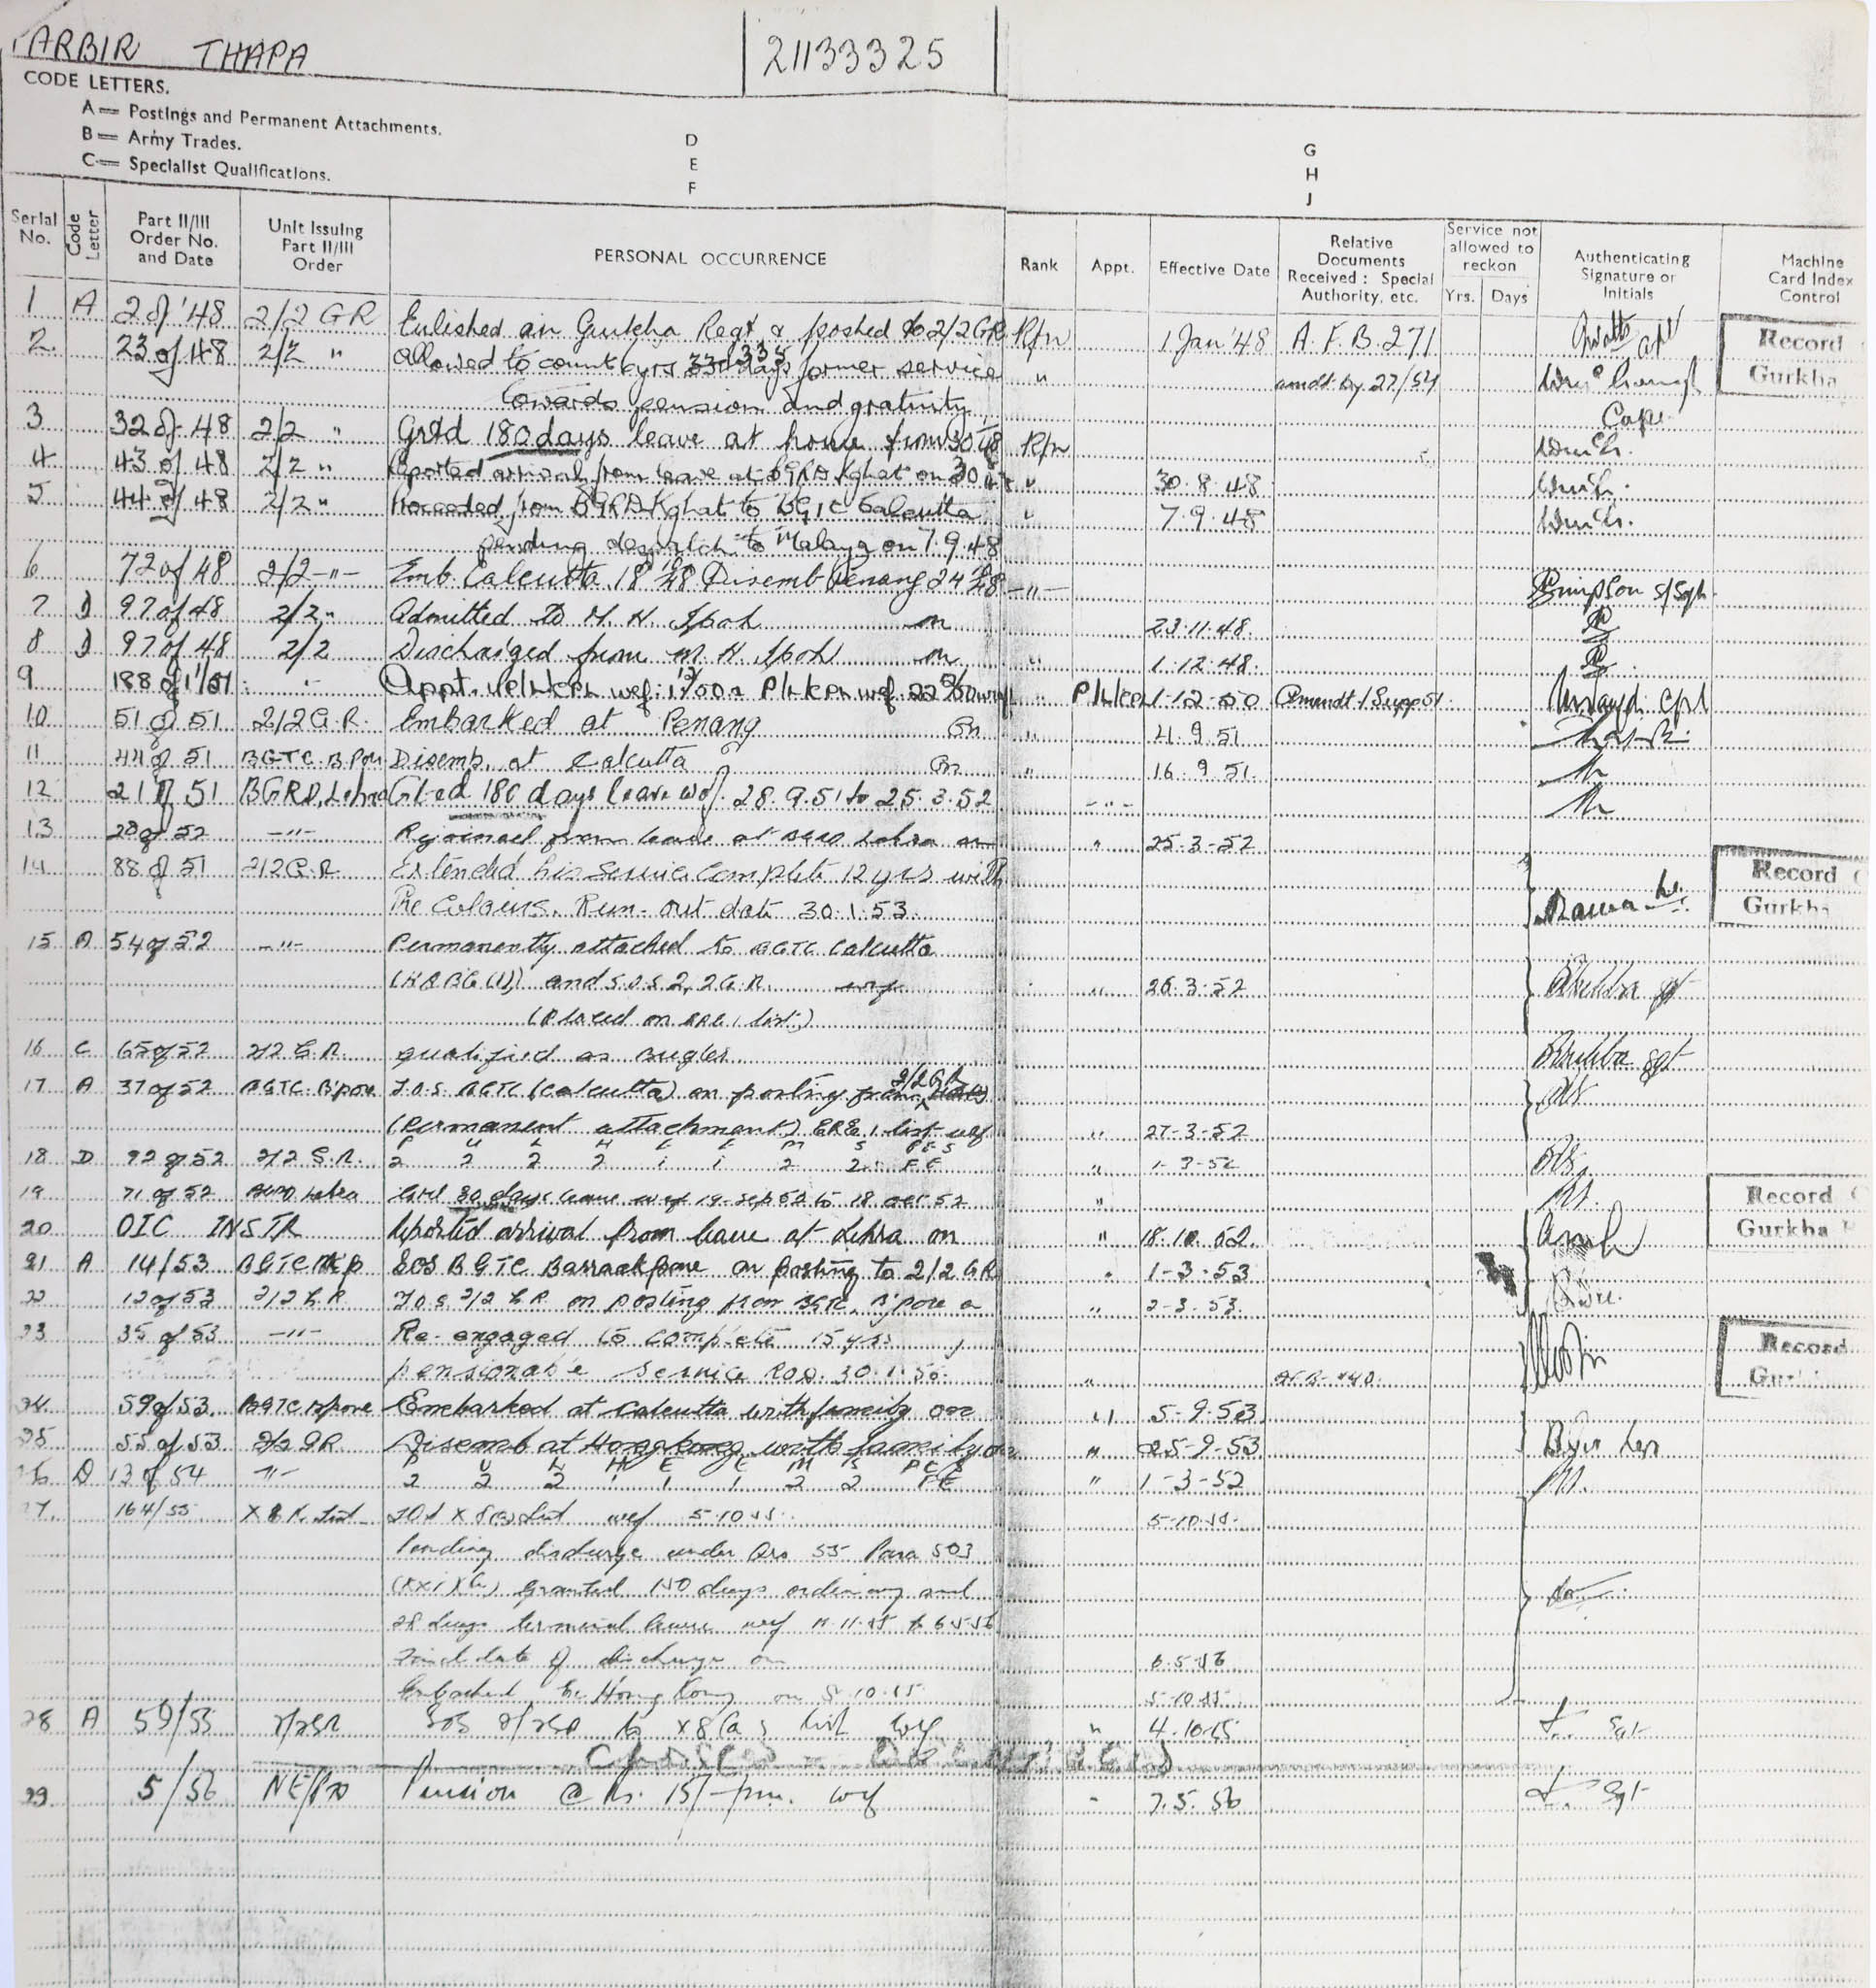 ARBIR THAPA 21133325
CODE LETTERS.
A = Postings and Permanent Attachments.
B = Army Trades.
C = Specialist Qualifications.
D
E
F
G
H
J
Serial No. Code Letter Part II/III Order No. and Date Unit Issuing Part II/III Order PERSONAL OCCURRENCE Rank Appt. Effective Date Relative Documents Received : Special Authority, etc. Service not allowed to reckon Yrs. Days Authenticating Signature or Initials Machine Card Index Control
1 A 2 of '48 2/2 GR Enlished in Gurkha Regt & posted to 2/2 GR Rfn 1 Jan '48 A.F.B. 271 Capt
Record
Gurkha
2 23 of 48 2/2 " Allowed to count 6 yrs 335 days former service " amdt. by 27/54
towards pension and gratuity Capt
3 32 of 48 2/2 " Grtd 180 days leave at home from Rfn
4 43 of 48 2/2 " Reported arrival from leave at BGRD Kghat on 30 " 30.8.48
5 44 of 48 2/2 " Proceeded from BGRD Kghat to BGTC Calcutta " 7.9.48
pending despatch to Malaya on 7.9.48
6 72 of 48 2/2 -"- Emb. Calcutta 18 48 Disemb Penang 24 48 -"- Simpson S/Sgt.
7 D 97 of 48 2/2 " Admitted to M. H. Ipoh on 23.11.48.
8 D 97 of 48 2/2 Discharged from M. H. Ipoh on " 1.12.48.
9 188 of 1/51 " Appt. P/L/Cpl wef " P/L/Cpl 1-12-50 Amendt 1 Supp 51 Cpl
10 51 of 51 2/2 G.R. Embarked at Penang On " 4.9.51
11 44 of 51 BGTC B.Pore Disemb. at Calcutta On " 16.9.51.
12 21 of 51 BGRD, Lehra Gt-ed 180 days leave wef. 28.9.51 to 25.3.52 -"-
13 28 of 52 -"- Rejoined from leave at Lehra on " 25-3-52
14 88 of 51 2/2 G.R. Extended his Service Complete 12 yrs with
The Colours. Run-out date 30.1.53.
Record
Gurkha
15 A 54 of 52 -"- Permanently attached to BGTC Calcutta
and S.O.S 2/2 G.R wef " 26.3.52
(Placed on ERE 1 list)
16 C 65 of 52 2/2 G.R. Qualified as Bugler Sgt
17 A 37 of 52 BGTC B'pore T.O.S. BGTC (Calcutta) on posting from 2/2 GR
(Permanent attachment) ERE 1 list wef " 27-3-52
P U L H E E M S PES
18 D 92 of 52 2/2 G.R. 2 2 2 2 1 1 2 2 FE " 1-3-52
19 71 of 52 Lehra Grtd 30 days leave wef 19-Sep 52 to 18 Oct 52 "
Record
Gurkha
20 OIC INSTR Reported arrival from leave at Lehra on " 18.10.52.
21 A 14/53 BGTC B'P SOS BGTC Barrackpore on posting to 2/2 GR " 1-3-53
22 12 of 53 2/2 G.R T.O.S 2/2 G.R. on posting from BGTC, B'pore " 2-3-53.
23 35 of 53 -"- Re-engaged to complete 15 yrs
pensionable Service ROD. 30.1.56. "
Record
Gur
24. 59 of 53. BGTC B/pore Embarked at Calcutta with family on " 5-9-53
25 55 of 53 2/2 GR Disemb at Hongkong with family on " 25-9-53
P U L H E E M S PES
26 D 13 of 54 -"- 2 2 2 1 1 1 2 2 FE " 1-3-52
27. 164/55 List TOS List wef 5.10.55. 5-10-55.
Pending discharge under Qrs 55 Para 503
Granted 150 days ordinary and
28 days terminal leave wef 11.11.55 to 6.5.56
Final date of discharge on 6.5.56
Embarked Hong Kong on 5.10.55 5-10-55.
28 A 59/55 2/2GR SOS 2/2GR to list wef " 4.10.55 Sgt
29. 5/56 Pension @ Rs. 15/- p.m. wef " 7.5.56 Sgt